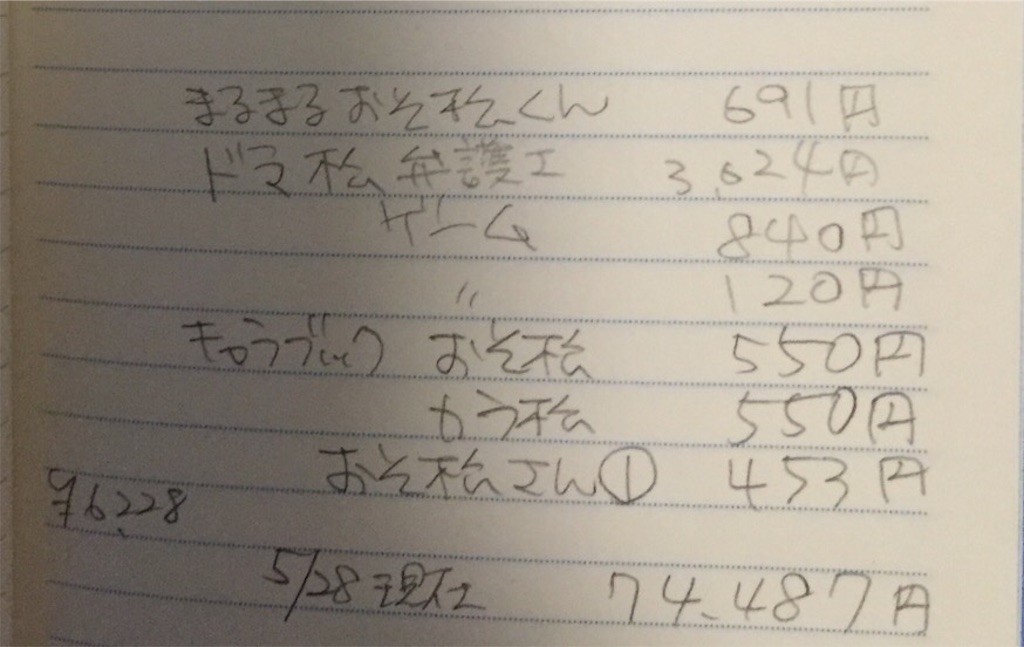 まるまるおそ松くん 691円
ドラマ松 弁護士 3,024円
ゲーム 840円
〃 120円
キャラブック おそ松 550円
カラ松 550円
おそ松さん① 453円
¥6,228
5/28現在 74,487円